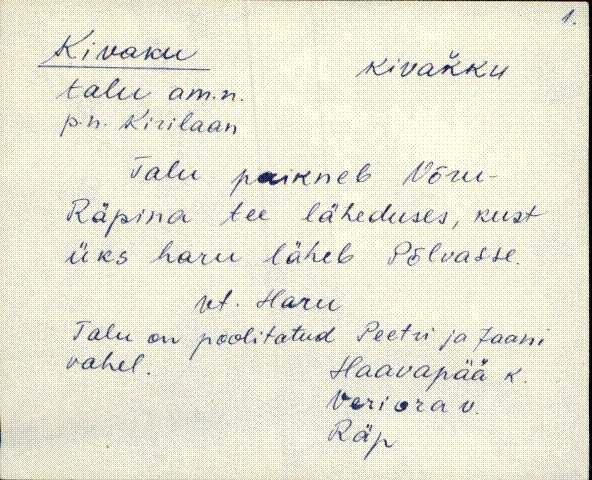 1.
Kivaku
kivak̆ku
talu am.n.
p.n. Kirilaan
Talu paikneb Võru-
Räpina tee läheduses, kust
üks haru läheb Põlvasse.
vt. Haru
Talu on poolitatud Peetri ja Jaani
vahel.
Haavapää k.
Veriora v.
Räp